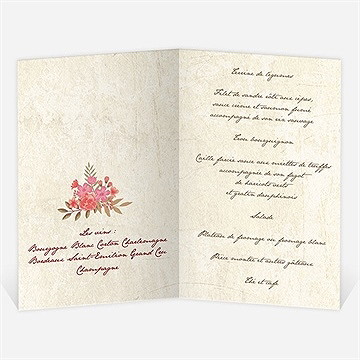 Les vins :
Bourgogne Blanc Corton Charlemagne
Bordeaux Saint-Emilion Grand Cru
Champagne
Terrine de legumes
Filet de sandre rôti aux cèpes,
sauce crème et saumon fumé
accompagné de son riz sauvage
Trou bourguignon
Caille farcie sauce aux miettes de truffes
accompagnée de son fagot
de haricots verts
et gratin dauphinois
Salade
Plateau de fromage ou fromage blanc
Pièce montée et autres gâteaux
Thé et café